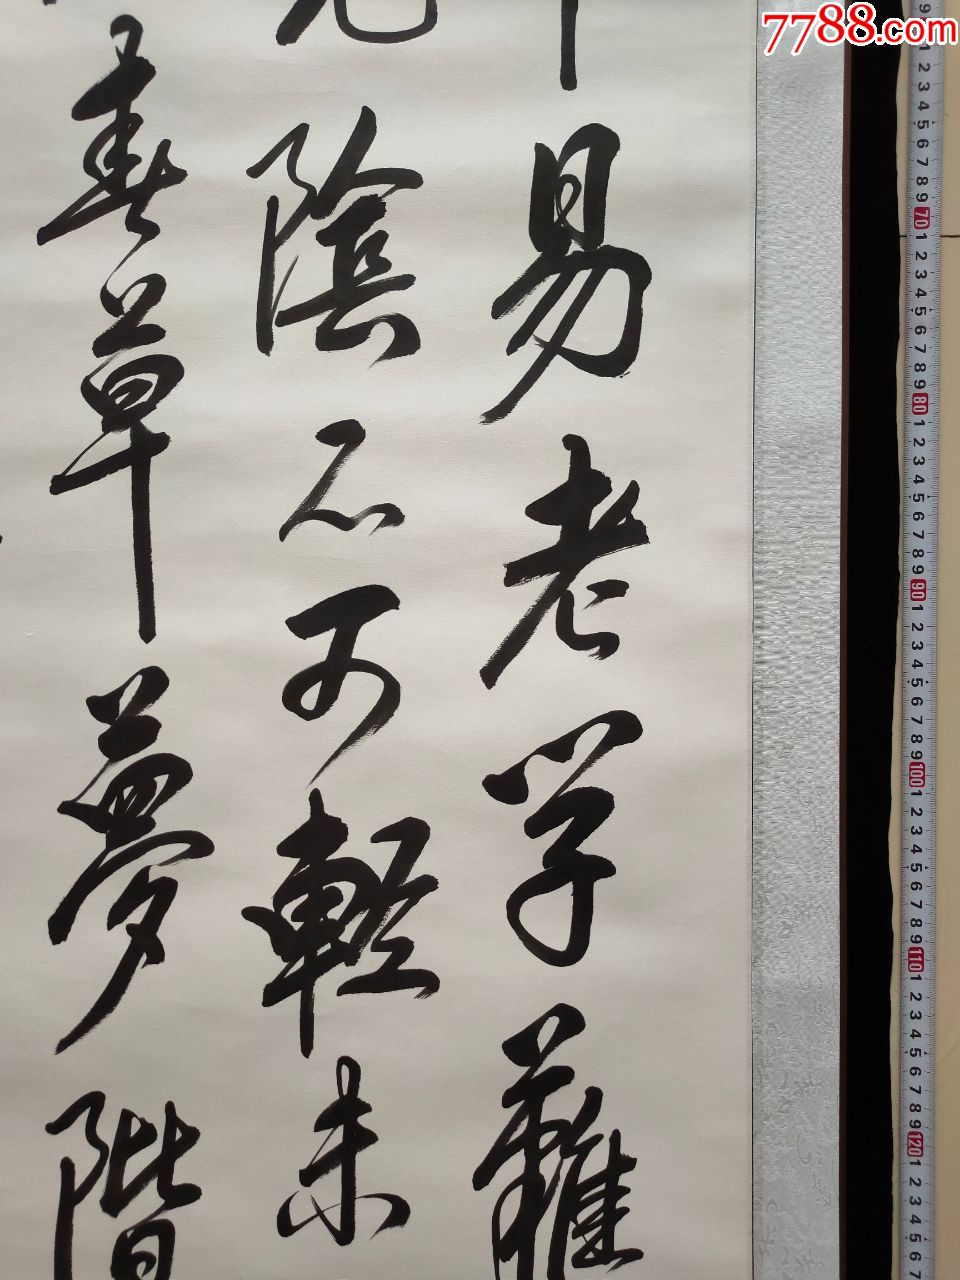 年易老学難
光陰不可輕未
春草夢階
7788.com
9 1 2 3 4 5 6 7 8 9 70 1 2 3 4 5 6 7 8 9 80 1 2 3 4 5 6 7 8 9 90 1 2 3 4 5 6 7 8 9 100 1 2 3 4 5 6 7 8 9 110 1 2 3 4 5 6 7 8 9 120 1 2 3 4 5 6 7